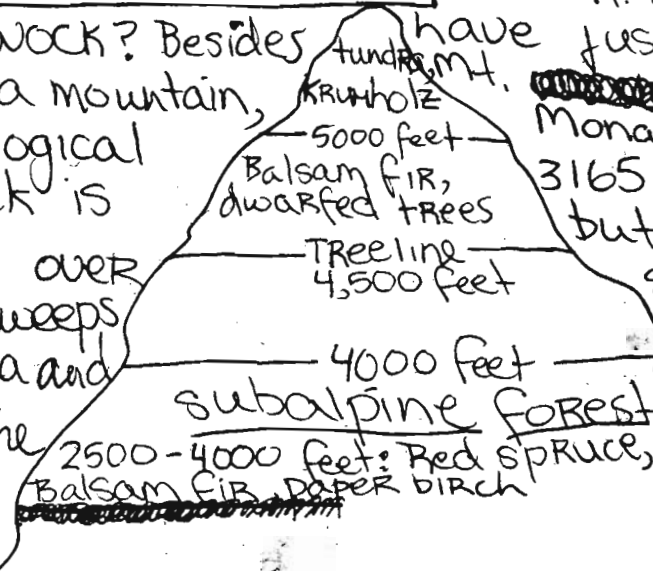 NOCK? Besides
a mountain,
ogical
k is
over
weeps
a and
he
tundra, Mt.
KRUMholz
5000 feet
Balsam fir,
dwarfed trees
Treeline
4,500 feet
4000 feet
subalpine forest
2500-4000 feet: Red spruce,
Balsam fir, paper birch
have jus
Mona
3165
but